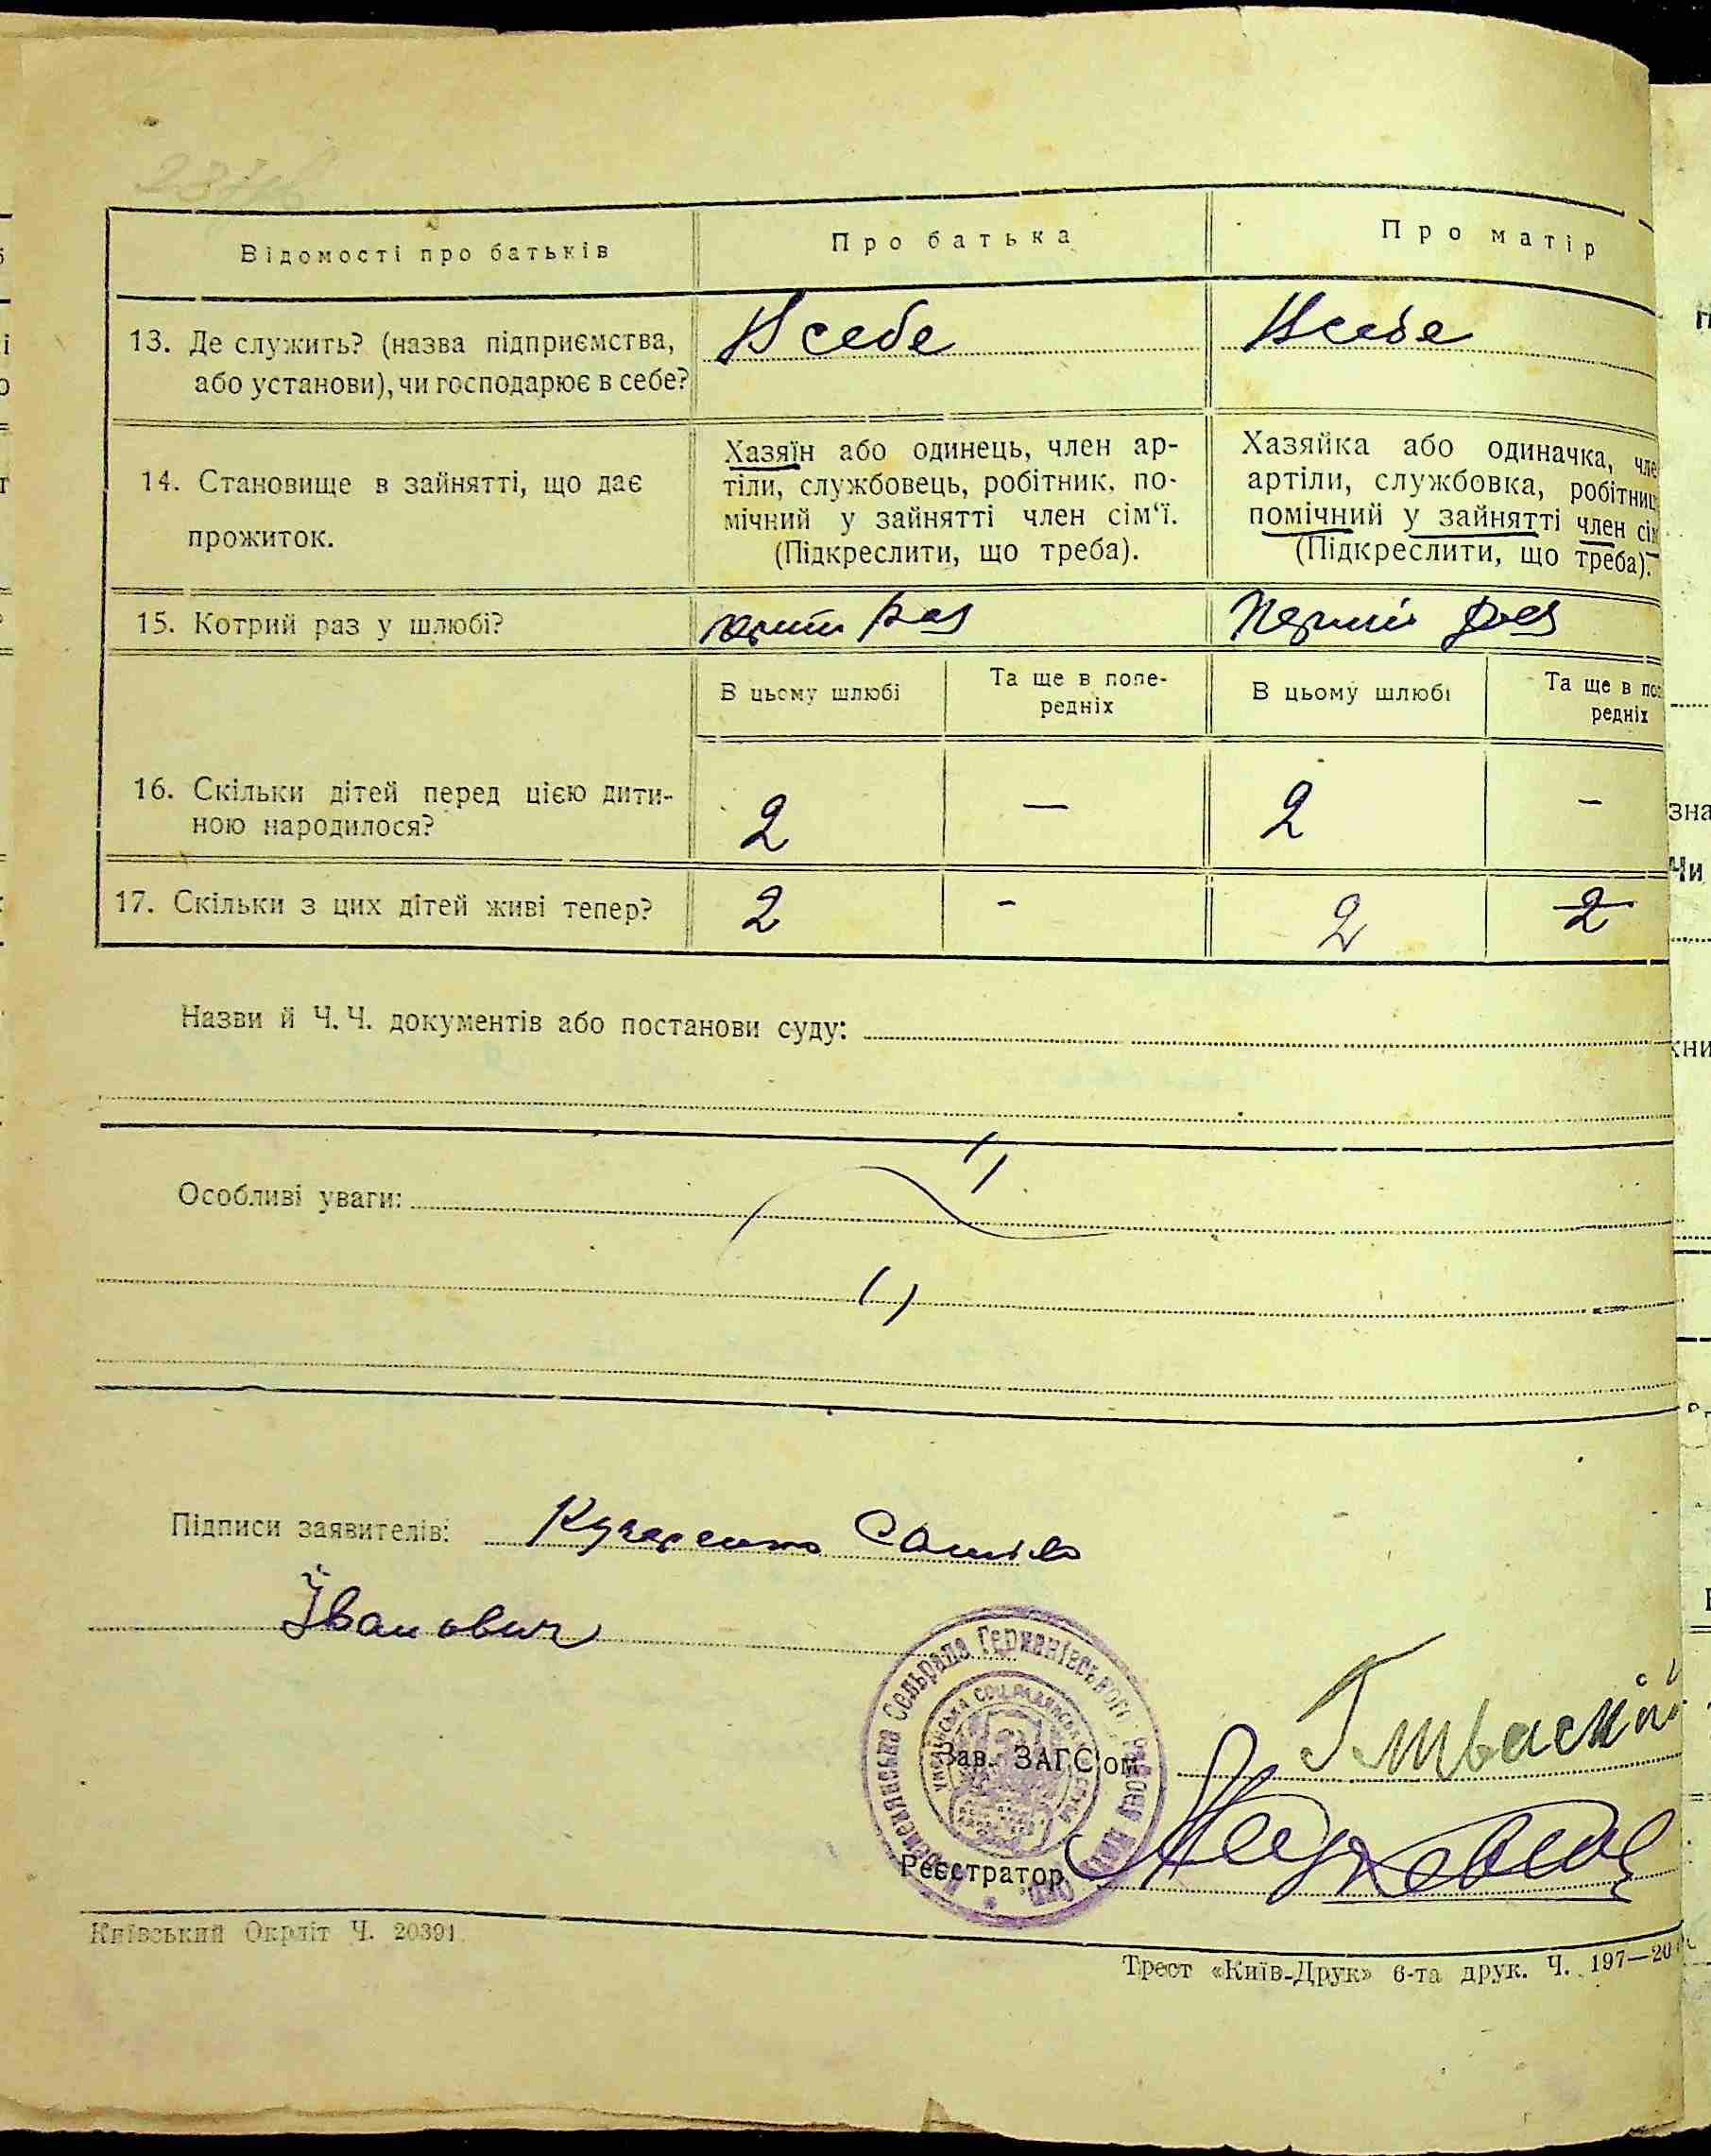 Відомості про батьків
Про батька
Про матір
13. Де служить? (назва підприємства,
або установи), чи господарює в себе?
В себе
В себе
14. Становище в зайнятті, що дає
прожиток.
Хазяїн або одинець, член ар-
тіли, службовець, робітник, по-
мічний у зайнятті член сім‘ї.
(Підкреслити, що треба).
Хазяйка або одиначка, чле
артіли, службовка, робітниц
помічний у зайнятті член сім
(Підкреслити, що треба).
15. Котрий раз у шлюбі?
раз
Перший раз
В цьому шлюбі
Та ще в попе-
редніх
В цьому шлюбі
Та ще в поп
редніх
16. Скільки дітей перед цією дити-
ною народилося?
2 — 2 —
17. Скільки з цих дітей живі тепер?
2 - 2 2
Назви й Ч. Ч. документів або постанови суду:
Особливі уваги:
Підписи заявителів:
Іванович
Сельрада Германівського
Зав. ЗАГС'ом
Реєстратор
Київський Окрліт Ч. 20391
Трест «Київ-Друк» 6-та друк. Ч. 197—20